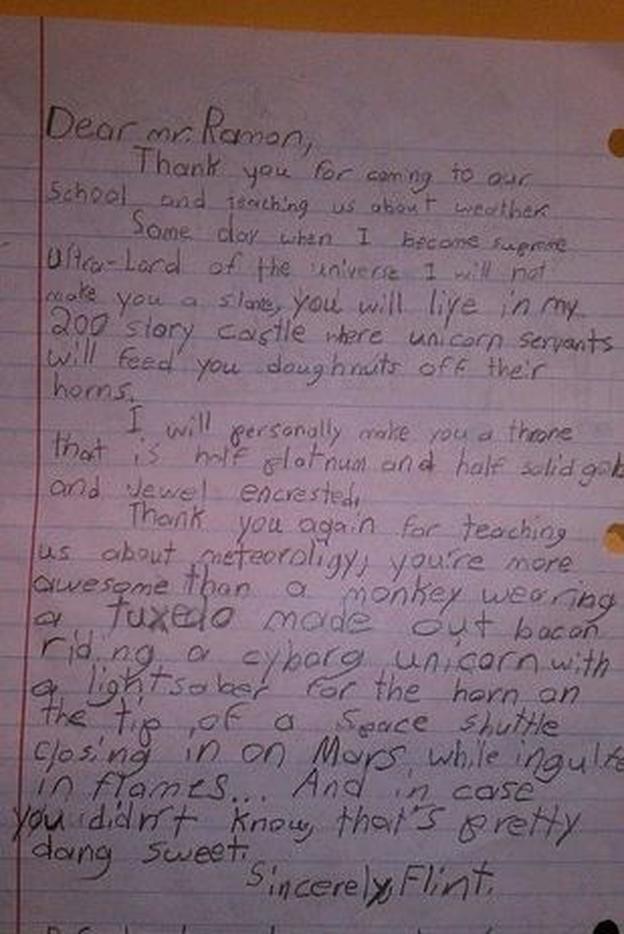 Dear mr. Ramon,
Thank you for coming to our
school and teaching us about weather.
Some day when I become supreme
Ultra-Lord of the universe I will not
make you a slave, you will live in my
200 story castle where unicorn servants
will feed you doughnuts off their
horns.
I will personally make you a throne
that is half platnum and half solid gold
and jewel encrested.
Thank you again for teaching
us about meteoroligy, you're more
awesome than a monkey wearing
a tuxedo made out bacon
riding a cyborg unicorn with
a lightsaber for the horn on
the tip of a space shuttle
closing in on Mars while ingulfe
in flames... And in case
you didn't know, that's pretty
dang sweet.
Sincerely, Flint.